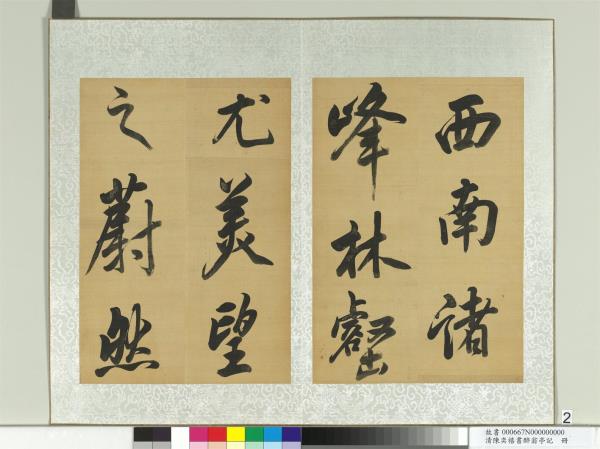 西南諸
峰林壑
尤美望
之蔚然
2
故書 000667N000000000
清陳奕禧書醉翁亭記 冊